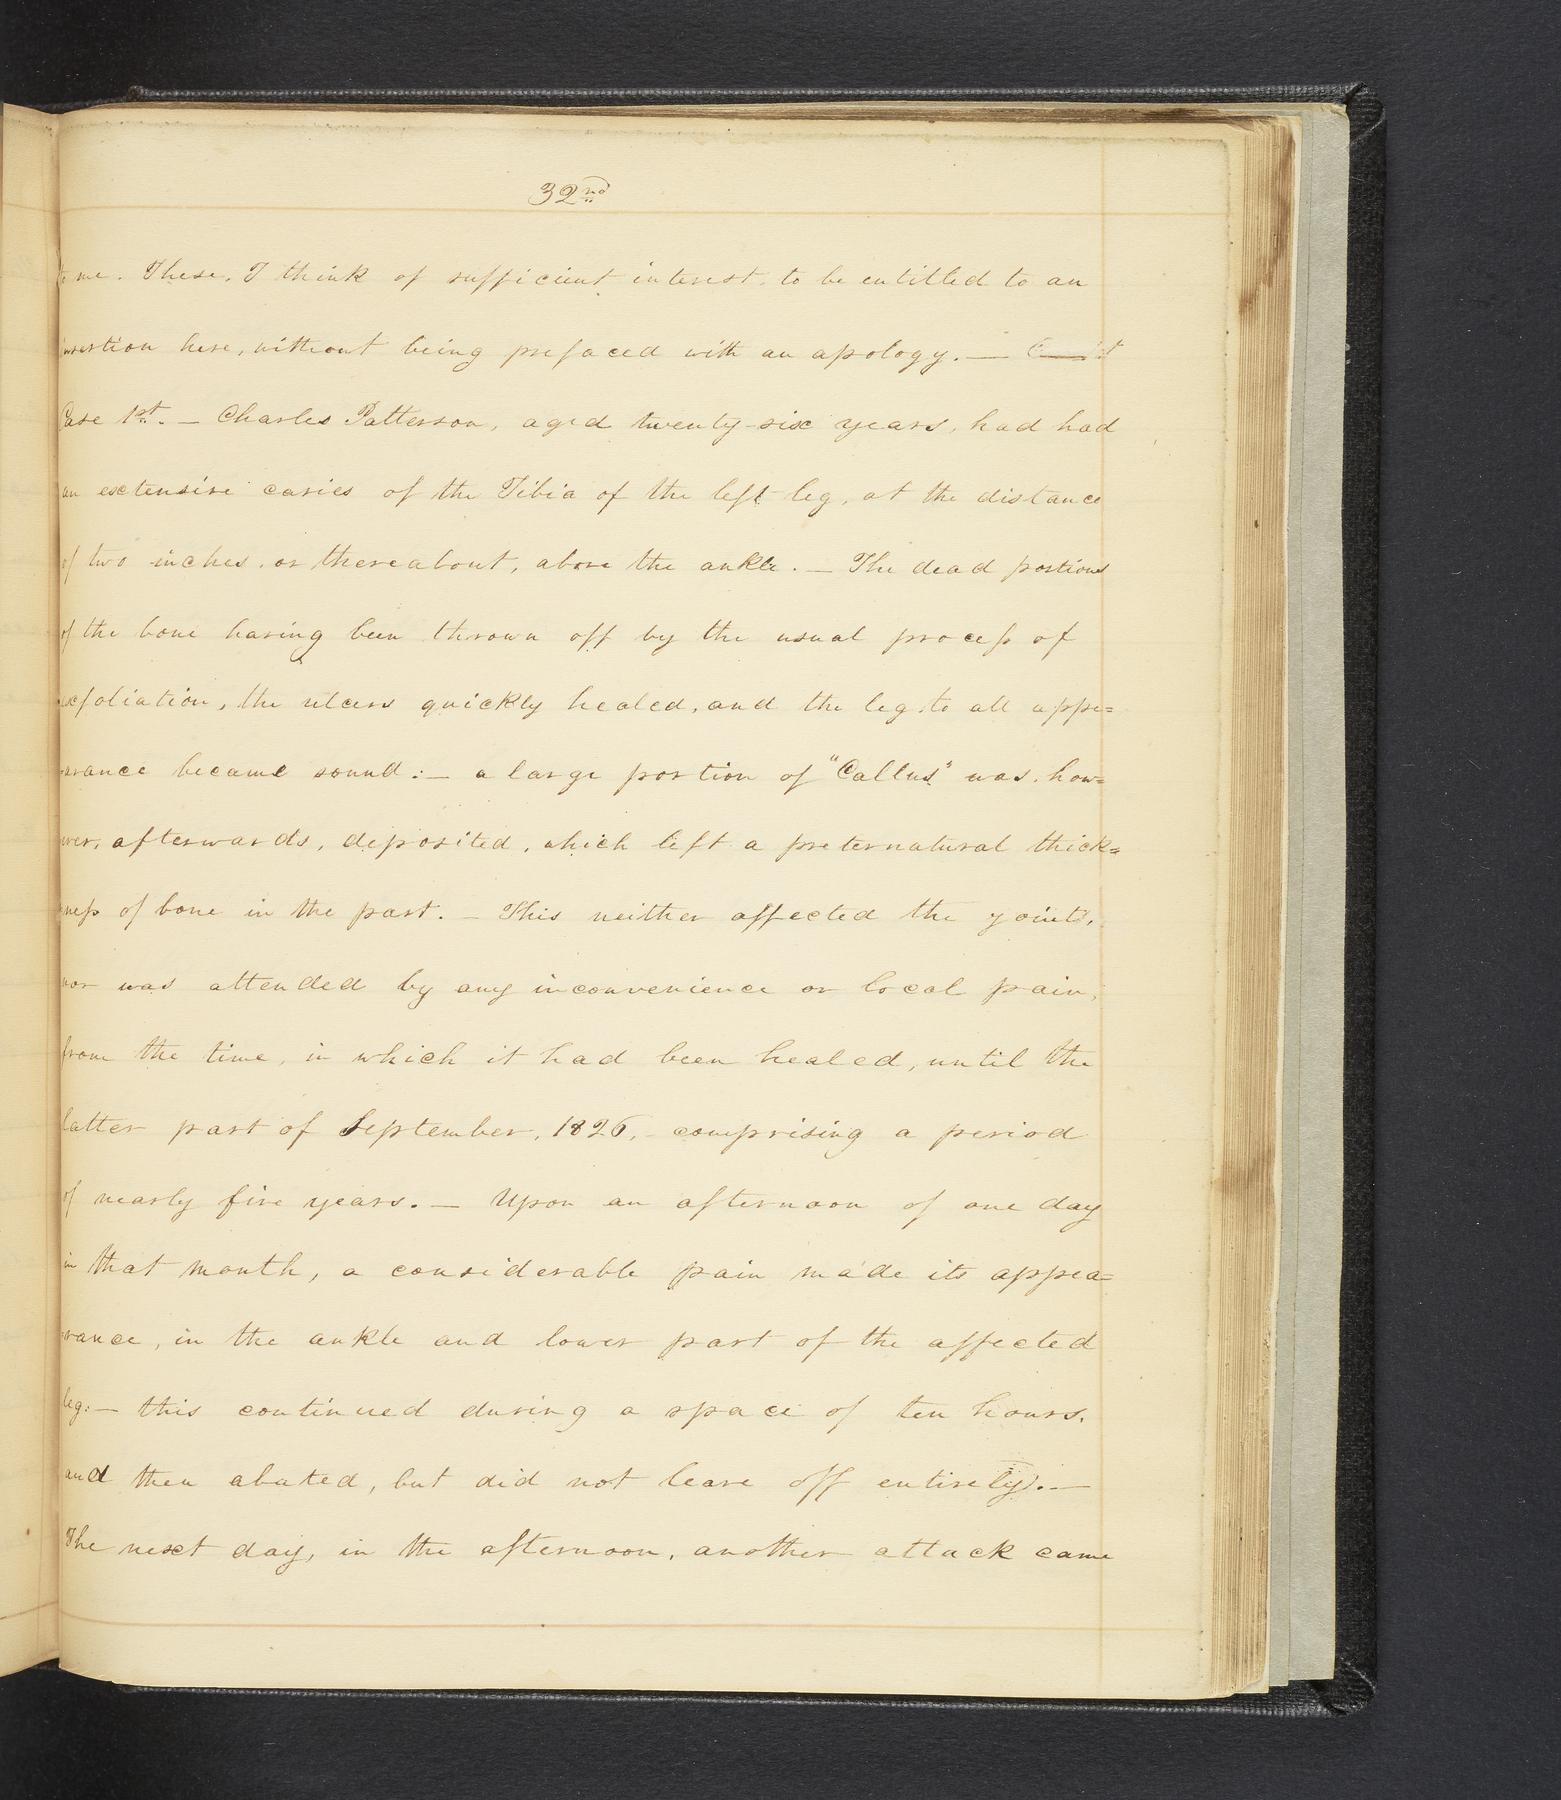 32nd
to me. These, I think of sufficient interest, to be entitled to an
insertion here, without being prefaced with an apology. —
Case 1st. — Charles Patterson, aged twenty-six years, had had
an extensive caries of the Tibia of the left leg, at the distance
of two inches, or thereabout, above the ankle. — The dead portions
of the bone having been thrown off by the usual process of
exfoliation, the ulcers quickly healed, and the leg to all appe=
arance became sound: — a large portion of "Callus" was, how=
ever, afterwards, deposited, which left a preternatural thick=
ness of bone in the part. — This neither affected the joints,
nor was attended by any inconvenience or local pain,
from the time, in which it had been healed, until the
latter part of September, 1826, comprising a period
of nearly five years. — Upon an afternoon of one day
in that month, a considerable pain made its appea=
rance, in the ankle and lower part of the affected
leg: — this continued during a space of ten hours,
and then abated, but did not leave off entirely. —
The next day, in the afternoon, another attack came